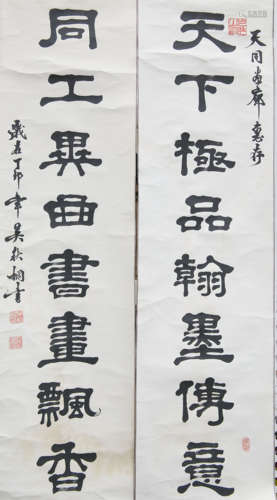 天同畫廊惠存
天下極品翰墨傳意
同工異曲書畫飄香
歲在丁卯年吳